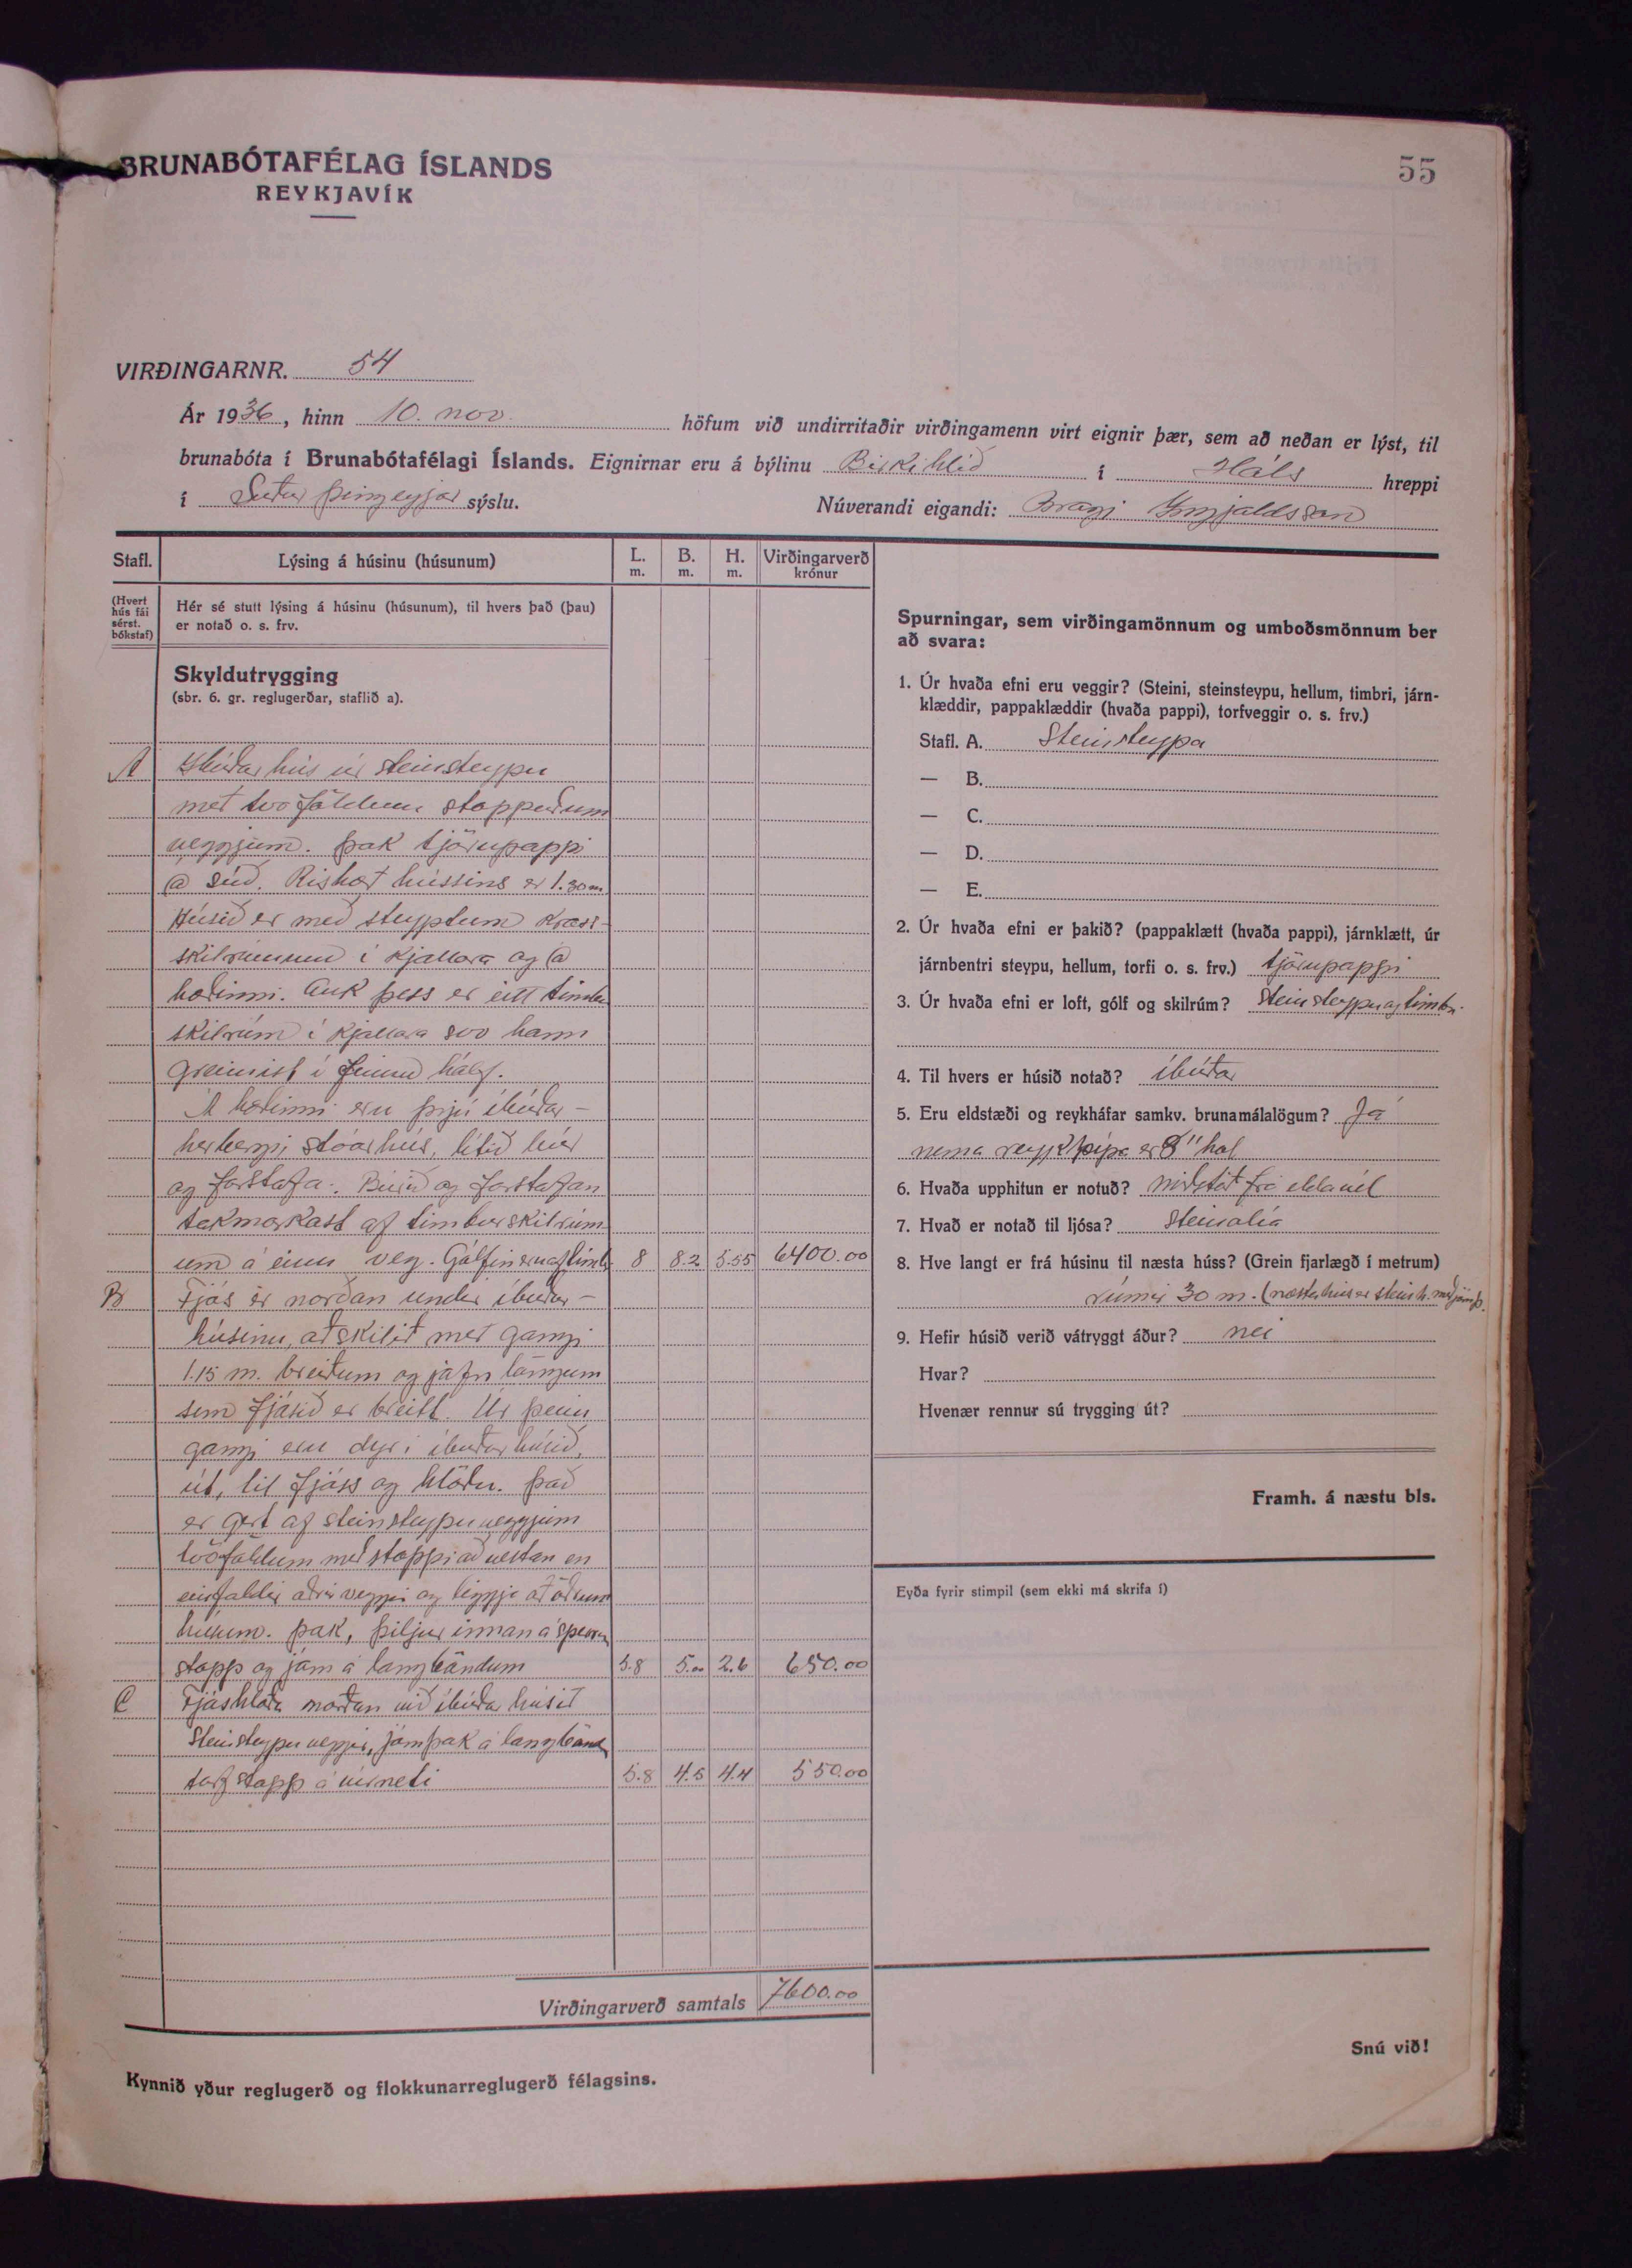 BRUNABÓTAFÉLAG ÍSLANDS
REYKJAVÍK
55
VIRÐINGARNR. 54
Ár 1936, hinn 10. nov. höfum við undirritaðir virðingamenn virt eignir þær, sem að neðan er lýst, til
brunabóta í Brunabótafélagi Íslands. Eignirnar eru á býlinu Birkihlíð í Háls hreppi
í Suður þingeyjar sýslu. Núverandi eigandi: Bragi Ingjaldsson
Stafl.
Lýsing á húsinu (húsunum)
L. m.
B. m.
H. m.
Virðingarverð krónur
(Hvert hús fái sérst. bókstaf)
Hér sé stutt lýsing á húsinu (húsunum), til hvers það (þau)
er notað o. s. frv.
Skyldutrygging
(sbr. 6. gr. reglugerðar, staflið a).
A Íbúðarhús úr steinsteypu
með tvoföldum stoppuðum
veggjum. Þak tjörupappi
á súð. Rishæð hússins er 1.30 m
Húsið er með steyptum kross-
skilrúmum í kjallara og á
hæðinni. Auk þess er eitt timbur
skilrúm í kjallara svo hann
greinist í fimm hólf.
Á hæðinni eru þrjú íbúðar-
herbergi stóarhús, lítið búr
og forstofa. Búrið og forstofan
takmarkast af timburskilrúm
um á einn veg. Gólfin eru af timbri 8 8.2 5.55 6400.00
B Fjós er norðan undir íbúðar-
húsinu, aðskilið með gangi
1.15 m. breiðum og jafn löngum
sem fjósið er breitt. Úr þeim
gangi eru dyr í íbúðarhúsið,
út, til fjóss og hlöðu. Það
er gert af steinsteypuveggjum
tvöföldum með stoppi að vestan en
einfaldir aðrir veggir og liggja að öðrum
húsum. Þak, þiljur innan á sperrum
stopp og járn á langböndum 5.8 5.00 2.6 650.00
C Fjóshlaða norðan við íbúðarhúsið
Steinsteypu veggir, járnþak á langbönd
torf stopp á vírneti 5.8 4.5 4.4 550.00
Virðingarverð samtals 7600.00
Kynnið yður reglugerð og flokkunarreglugerð félagsins.
Spurningar, sem virðingamönnum og umboðsmönnum ber
að svara:
1. Úr hvaða efni eru veggir? (Steini, steinsteypu, hellum, timbri, járn-
klæddir, pappaklæddir (hvaða pappi), torfveggir o. s. frv.)
Stafl. A. Steinsteypa
— B.
— C.
— D.
— E.
2. Úr hvaða efni er þakið? (pappaklætt (hvaða pappi), járnklætt, úr
járnbentri steypu, hellum, torfi o. s. frv.) tjörupappi
3. Úr hvaða efni er loft, gólf og skilrúm? Steinsteypu og timbri
4. Til hvers er húsið notað? íbúðar
5. Eru eldstæði og reykháfar samkv. brunamálalögum? Já
nema reykpípa er 8" hol
6. Hvaða upphitun er notuð? miðstöð frá eldavél
7. Hvað er notað til ljósa? steinolía
8. Hve langt er frá húsinu til næsta húss? (Grein fjarlægð í metrum)
rúmir 30 m. (næsta hús er steinh. með járnþ.
9. Hefir húsið verið vátryggt áður? nei
Hvar?
Hvenær rennur sú trygging út?
Framh. á næstu bls.
Eyða fyrir stimpil (sem ekki má skrifa í)
Snú við!